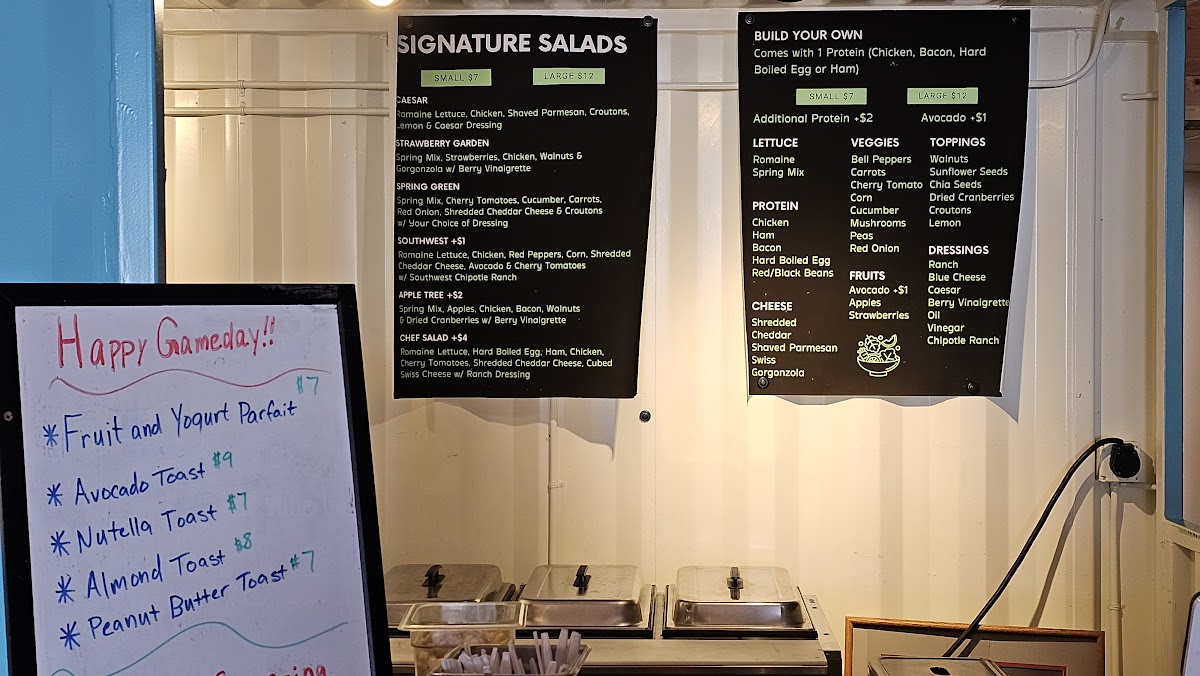 SIGNATURE SALADS
SMALL $7
LARGE $12
CAESAR
Romaine Lettuce, Chicken, Shaved Parmesan, Croutons,
Lemon & Caesar Dressing
STRAWBERRY GARDEN
Spring Mix, Strawberries, Chicken, Walnuts &
Gorgonzola w/ Berry Vinaigrette
SPRING GREEN
Spring Mix, Cherry Tomatoes, Cucumber, Carrots,
Red Onion, Shredded Cheddar Cheese & Croutons
w/ Your Choice of Dressing
SOUTHWEST +$1
Romaine Lettuce, Chicken, Red Peppers, Corn, Shredded
Cheddar Cheese, Avocado & Cherry Tomatoes
w/ Southwest Chipotle Ranch
APPLE TREE +$2
Spring Mix, Apples, Chicken, Bacon, Walnuts
& Dried Cranberries w/ Berry Vinaigrette
CHEF SALAD +$4
Romaine Lettuce, Hard Boiled Egg, Ham, Chicken,
Cherry Tomatoes, Shredded Cheddar Cheese, Cubed
Swiss Cheese w/ Ranch Dressing
BUILD YOUR OWN
Comes with 1 Protein (Chicken, Bacon, Hard
Boiled Egg or Ham)
SMALL $7
LARGE $12
Additional Protein +$2
Avocado +$1
LETTUCE
Romaine
Spring Mix
PROTEIN
Chicken
Ham
Bacon
Hard Boiled Egg
Red/Black Beans
CHEESE
Shredded
Cheddar
Shaved Parmesan
Swiss
Gorgonzola
VEGGIES
Bell Peppers
Carrots
Cherry Tomato
Corn
Cucumber
Mushrooms
Peas
Red Onion
FRUITS
Avocado +$1
Apples
Strawberries
TOPPINGS
Walnuts
Sunflower Seeds
Chia Seeds
Dried Cranberries
Croutons
Lemon
DRESSINGS
Ranch
Blue Cheese
Caesar
Berry Vinaigrette
Oil
Vinegar
Chipotle Ranch
Happy Gameday!!
* Fruit and Yogurt Parfait $7
* Avocado Toast $9
* Nutella Toast $7
* Almond Toast $8
* Peanut Butter Toast $7